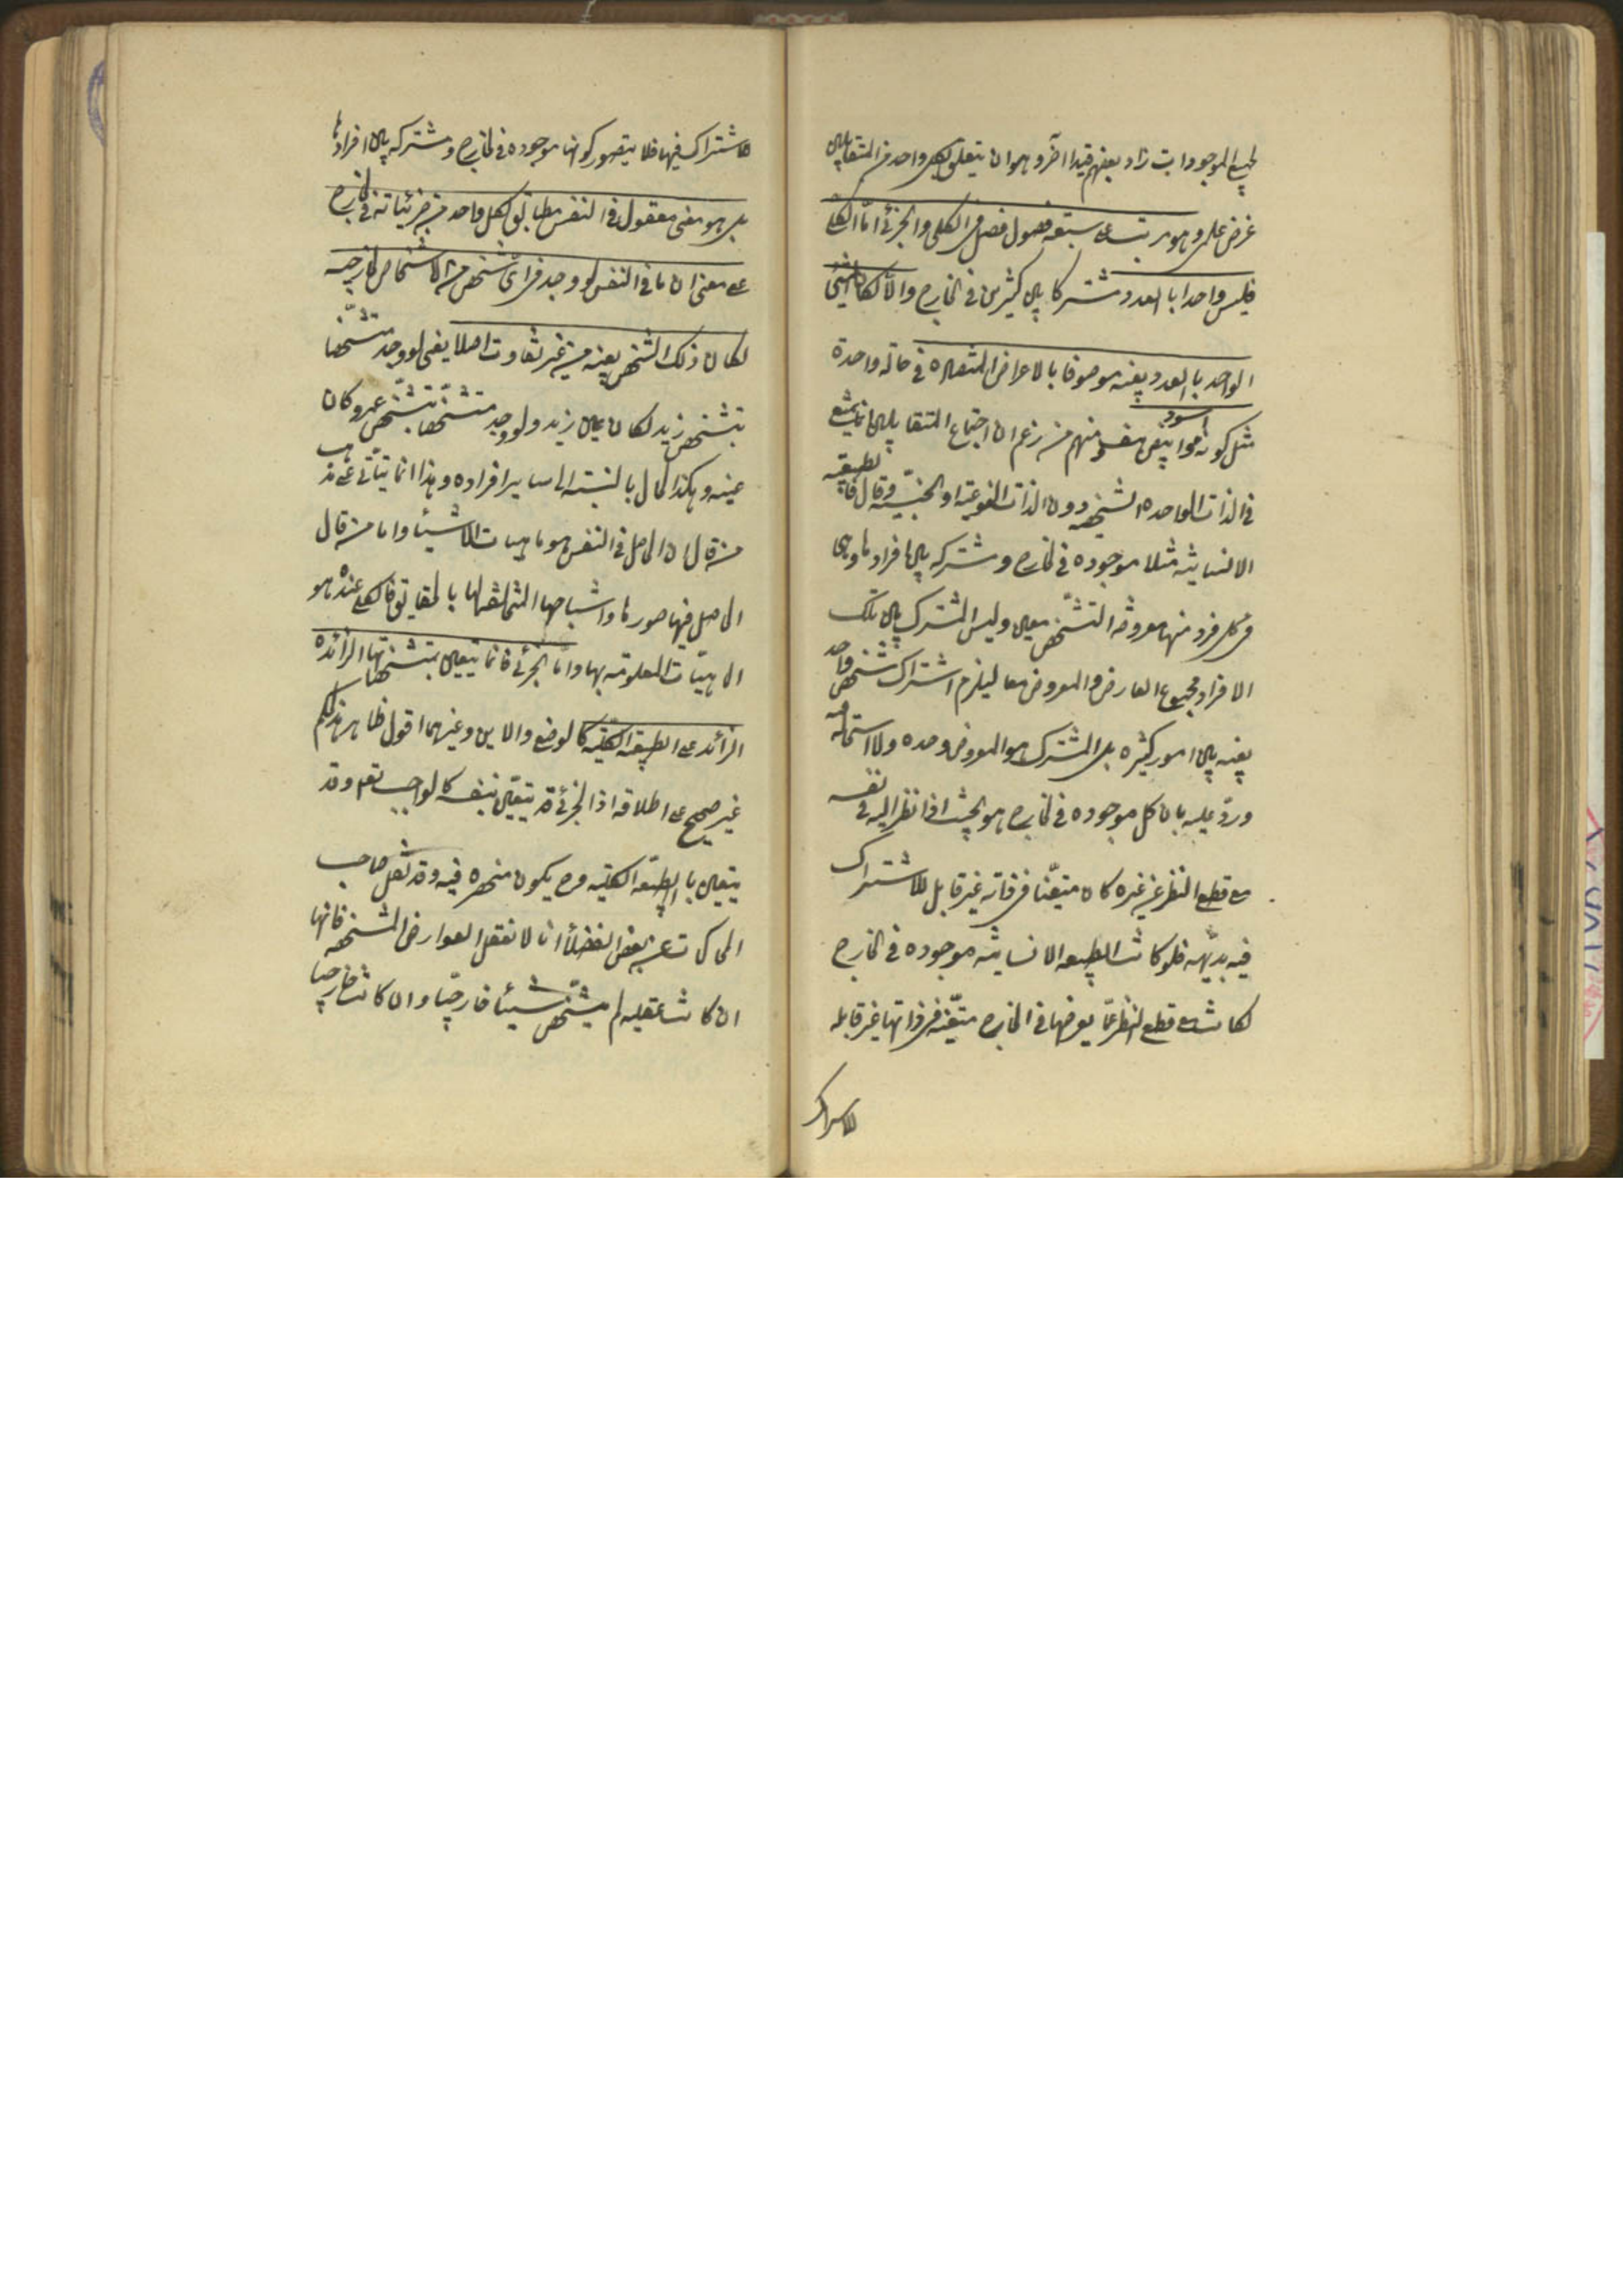 لجميع الموجودات زاد بعضهم قيدا آخر و هو ان يتعلق بكل واحد من المتقابلين
غرض علمي و هو مرتب على سبعة فصول فصل في الكلي والجزئي امّا الكلي
فليس واحدا بالعدد مشتركا بين كثيرين في الخارج والّا لكان الشئ
الواحد بالعدد بعينه موصوفا بالاعراض المتضادة في حالة واحدة
مثل كونه اسود و ابيض منهم من زعم ان اجتماع المتقابلين انما يمتنع
في الذات الواحده الشخصيه دون الذات النوعية او الجنسيّة وقال فالطبيعة
الانسانية مثلا موجوده في الخارج و مشتركه بين افرادها وهي
في كل فرد منها معروضة لتشخّص معين وليس المشترك بين تلك
الافراد مجموع العارض والمعروض معا ليلزم اشتراك شخص واحد
بعينه بين امور كثيره بل المشترك هو المعروض وحده ولا استحالة فيه
وردّ عليه بان كل موجوده في الخارج هو بحيث اذا نظر اليه في نفسه
مع قطع النظر عن غيره كان متعيّنا في ذاته غير قابل للاشتراك
فيه بديهة فلو كانت الطبيعه الانسانية موجوده في الخارج
لكانت مع قطع النظر عمّا يعرضها في الخارج متعيّنه في ذاتها غير قابله
للاشتراك
للاشتراك فيها فلا يتصور كونها موجوده في الخارج و مشتركه بين افرادها
بل هو معنى معقول في النفس مطابق لكل واحد من جزئياته في الخارج
على معنى ان ما في النفس لو وجد في اىّ شخص من الاشخاص الخارجيه
لكان ذلك الشخص بعينه من غير تفاوت اصلا يعني لو وجد متشخّصا
بتشخص زيد لكان عين زيد ولو وجد متشخّصا بتشخّص عمرو كان
عينه وهكذا الحال بالنسبة الى ساير افراده وهذا انما يتأتى على مذهب
من قال ان الحاصل في النفس هو ماهيات الاشياء واما من قال
الحاصل فيها صورها و اشباحها المخالفة لها بالحقايق فالكلي عنده هو
الماهيّات المعلومة بها وامّا الجزئي فانما يتعين بتشخصها الزائده
الزائد على الطبيعة الكليّة كالوضع والاين وغيرهما اقول ظاهر هذا الكلام
غير صحيح على اطلاقه اذ الجزئي قد يتعيّن بنفسه كالواجب تعم وقد
يتعين بالطبيعة الكلية وح يكون منحصره فيه وقد نقل صاحب
المحاكمات عن بعض الفضلاء انا لا نعقل العوارض المشخصه فانها
ان كانت عقليه لم يتشخّص شيئا خارجيّا وان كانت خارجيا